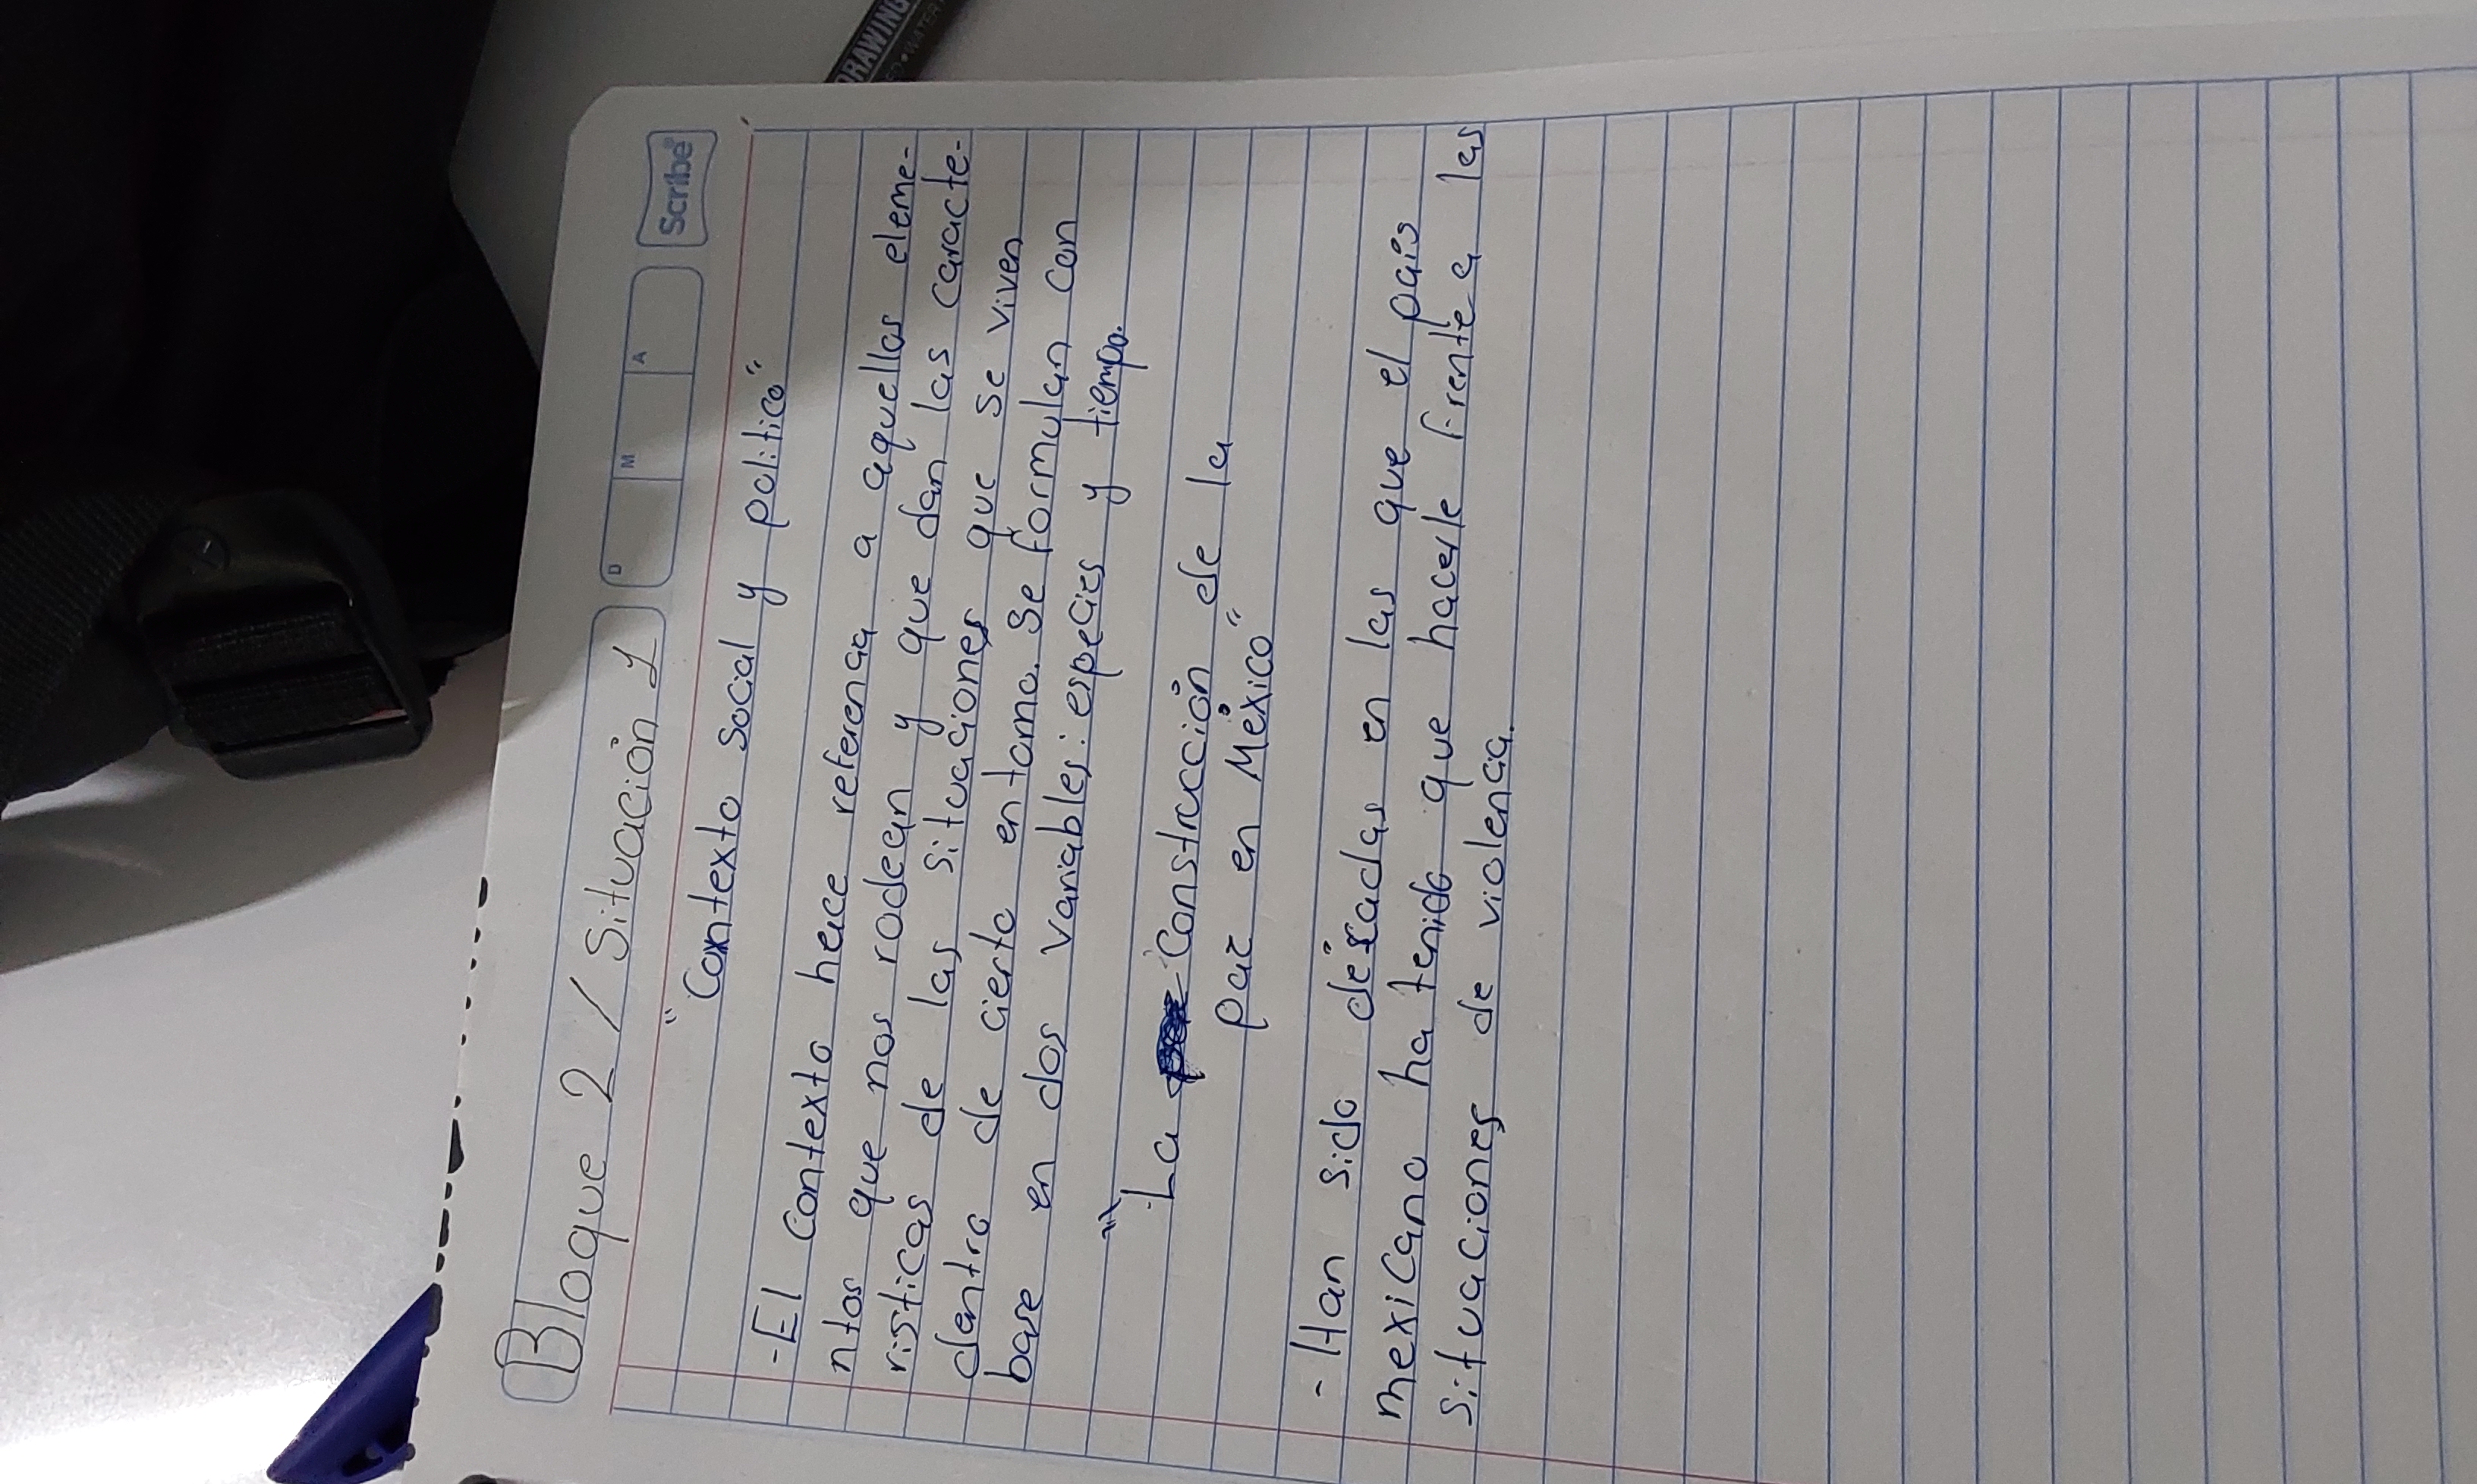 DRAWING
WATER
Scribe
D M A
Bloque 2 / Situación 1
"Contexto social y politico"
-El contexto hace referencia a aquellos eleme-
ntos que nos rodean y que dan las caracte-
risticas de las situaciones que se viven
dentro de cierto entorno. Se formulan con
base en dos variables: especies y tiempo.
"La Construcción de la
paz en México"
- Han sido décadas en las que el país
mexicano ha tenido que hacerle frente a las
situaciones de violencia.